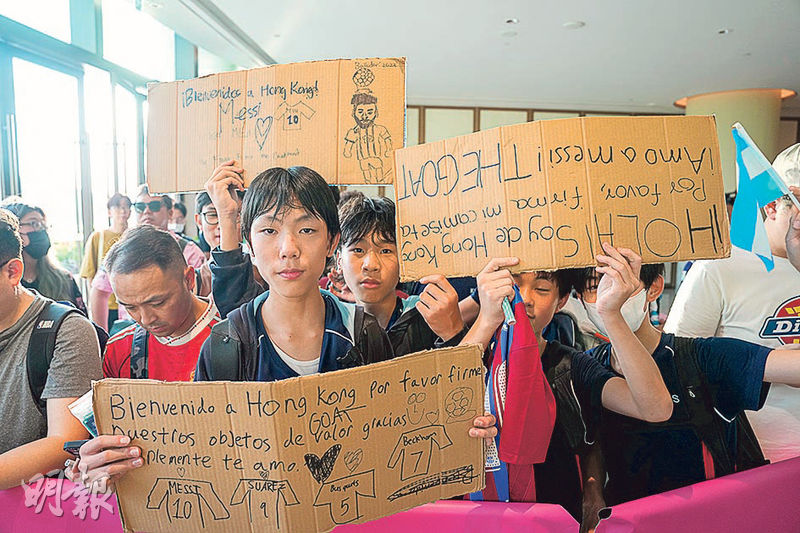 ¡Bienvenidos a Hong Kong!
Messi
MESSI
10
¡HOLA! Soy de Hong Kong
Por favor, firma mi camiseta
¡Amo a messi! ¡THE GOAT
Bienvenido a Hong Kong Por favor firme
nuestros objetos de valor gracias GOAT
plemente te amo.
MESSI
10
SUAREZ
9
Busquets
5
Beckham
7
NBA
Dickies
明報